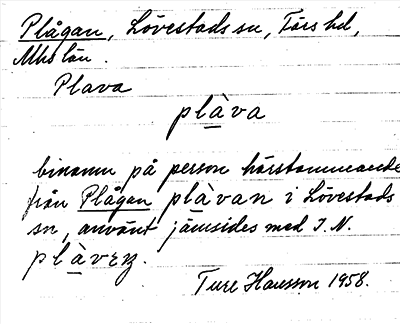 Plågan, Lövestads sn, Färs hd,
Mhs län.
Plava
plàva
binamn på person härstammande
från Plågan plàvan i Lövestads
sn, använt jämsides med I.N.
plàveɳ.
Ture Hansson 1958.